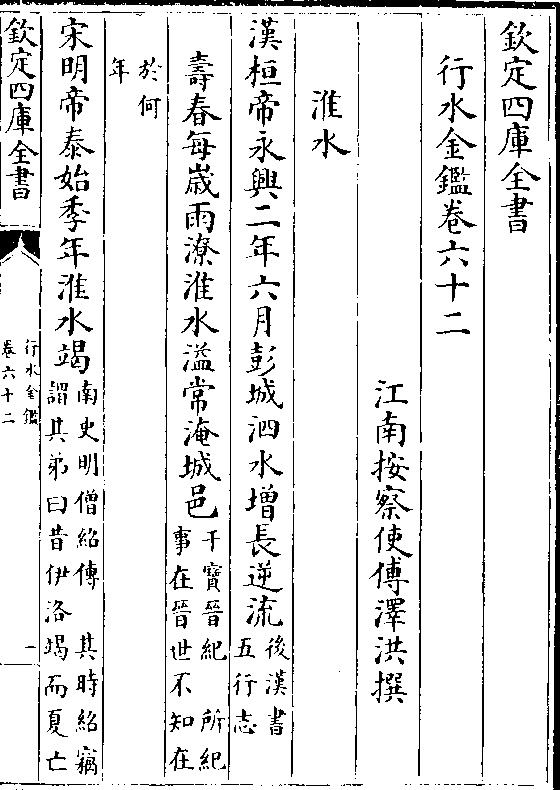 欽定四庫全書
行水金鑑卷六十二
江南按察使傅澤洪撰
淮水
漢桓帝永興二年六月彭城泗水增長逆流後漢書五行志
壽春每嵗雨潦淮水溢常淹城邑干寶晉紀 所紀事在晉世不知在
於何年
宋明帝泰始季年淮水竭南史明僧紹傳 其時紹竊謂其弟曰昔伊洛竭而夏亡
欽定四庫全書
行水金鑑
卷六十二
一